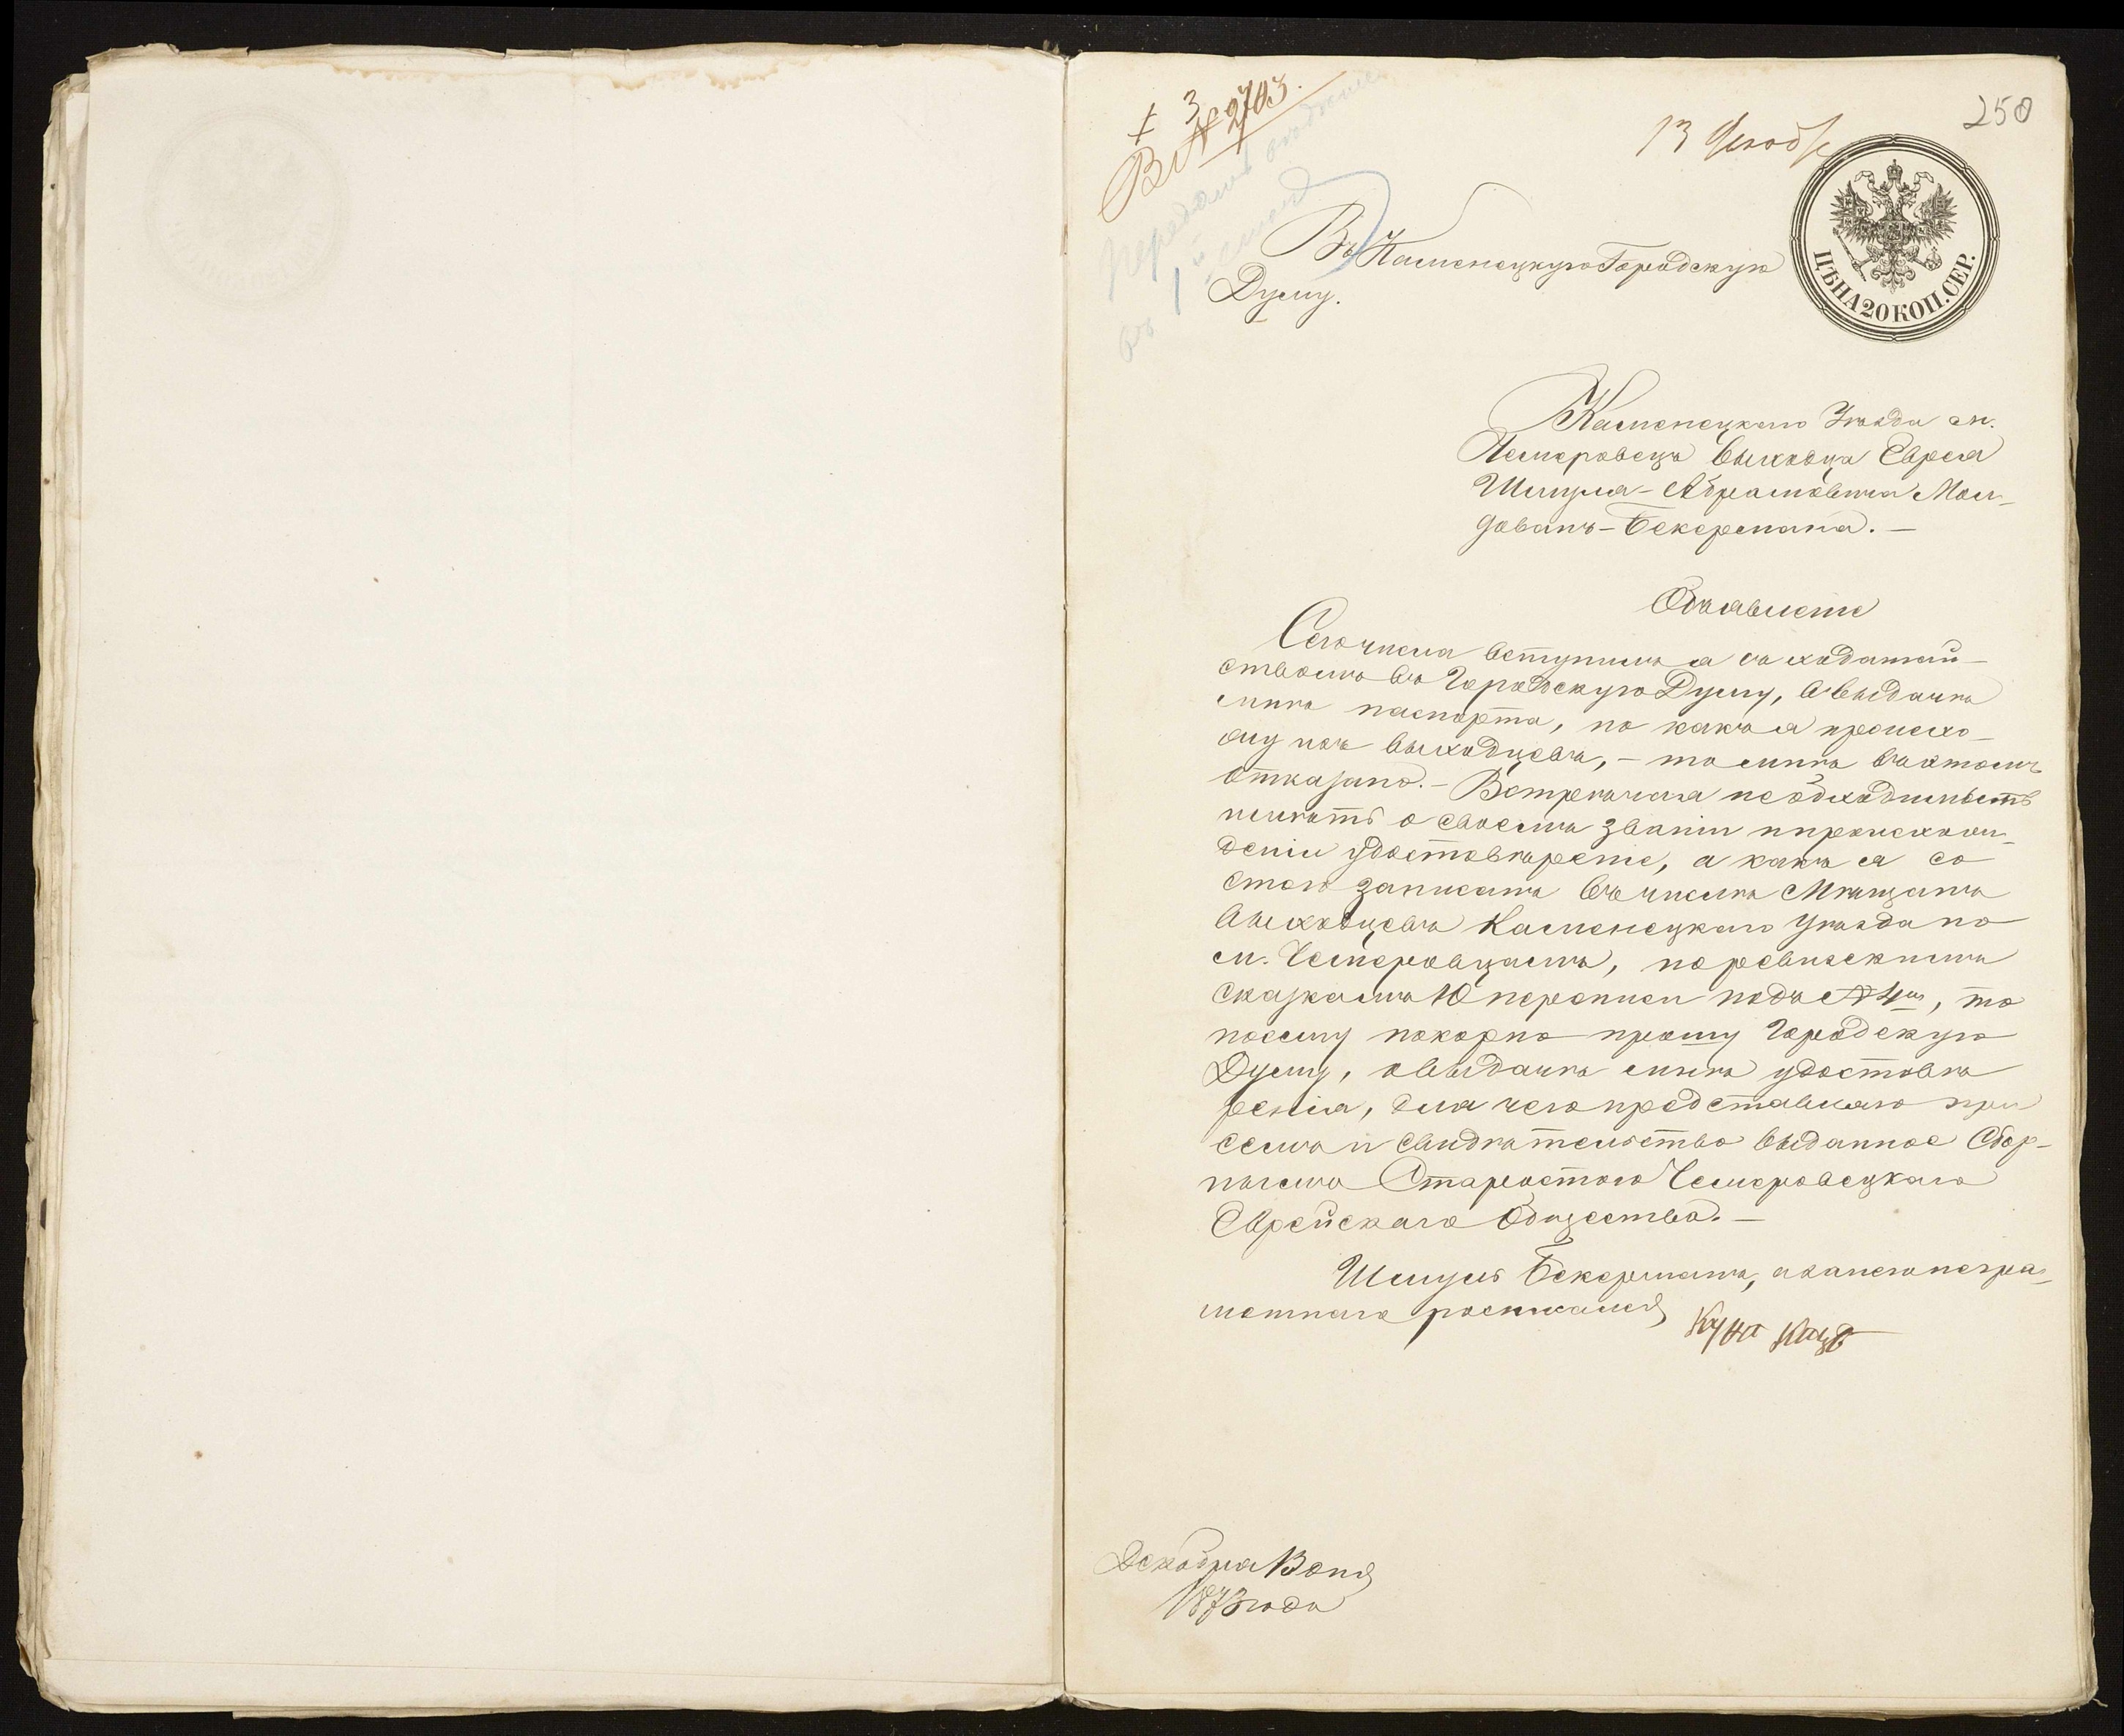 250
13 Декабр
Вх № 2703.
передать
въ 1й столъ
ЦѢНА 20 КОП. СЕР.
Въ Каменецкую Городскую
Думу.
Каменецкаго Уѣзда м.
Чемеровецъ выходца Еврея
Шмуля-Абрамовича Мол-
дованъ-Бекермана. —
Объявленіе
Сего числа вступилъ я съ ходатай-
ствомъ въ Городскую Думу, о выдачѣ
мнѣ паспорта, но какъ я происхо-
жу изъ выходцевъ, — то мнѣ въ этомъ
отказано. — Встрѣчая необходимость
имѣть о своемъ званіи и происхож-
деніи удостовѣреніе, а какъ я со
стою записанъ въ числѣ Мѣщанъ
выходцевъ Каменецкаго Уѣзда по
м. Чемеровцамъ, по ревизскимъ
сказкамъ 10 переписи подъ № 4м, то
посему покорно прошу Городскую
Думу, о выдачѣ мнѣ удостовѣ
ренія, для чего представляю при
семъ и свидѣтельство выданное Сбор-
нымъ Старостою Чемеровецкаго
Еврейскаго Общества. —
Шмуль Бекерманъ, а за него негра-
мотнаго росписался
Декабря 13 дня
1873 года